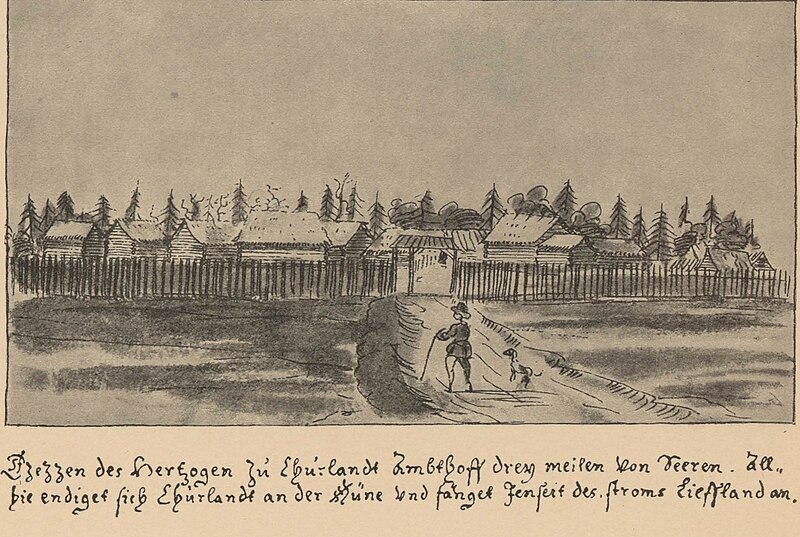 Tzezzen des Hertzogen zu Churlandt Ambthoff drey meilen von Seeren. All„
hie endiget sich Churlandt an der Düne vnd fänget Jenseit des stroms Lieffland an.